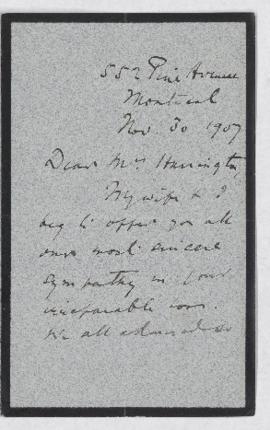 552 Pine Avenue
Montreal
Nov. 30 1907
Dear Mrs Harrington,
My wife & I
beg to offer you all
our most sincere
sympathy in your
irreparable loss.
We all admired so